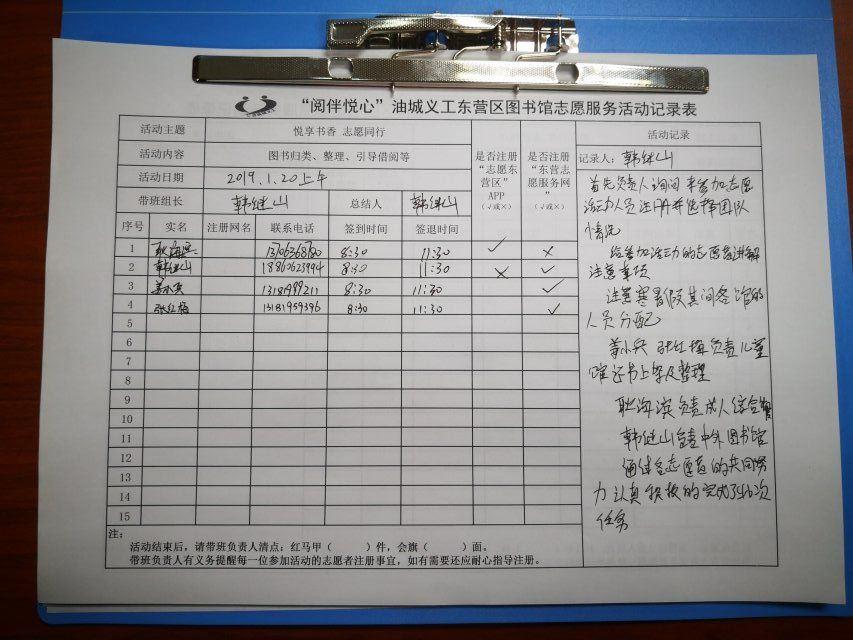 “阅伴悦心”油城义工东营区图书馆志愿服务活动记录表
活动主题 悦享书香 志愿同行
活动内容 图书归类、整理、引导借阅等
活动日期 2019.1.20上午
带班组长 韩继山 总结人 韩继山
是否注册“志愿东营区”APP（√或×）
是否注册“东营志愿服务网”（√或×）
序号 实名 注册网名 联系电话 签到时间 签退时间
1 耿海滨 13706368780 8:30 11:30 √ ×
2 韩继山 18860623994 8:30 11:30 × √
3 姜小兵 13181999211 8:30 11:30 √
4 张红梅 13181959396 8:30 11:30 √
5
6
7
8
9
10
11
12
13
14
15
注：
活动结束后，请带班负责人清点：红马甲（ ）件，会旗（ ）面。
带班负责人有义务提醒每一位参加活动的志愿者注册事宜，如有需要还应耐心指导注册。
活动记录
记录人：韩继山
首先负责人询问来参加志愿
活动人员注册并选择团队
情况
给参加活动的志愿者讲解
注意事项
注意寒暑假其间各馆的
人员分配
姜小兵 张红梅负责儿童
馆还书上架及整理
耿海滨负责成人综合馆
韩继山负责中外图书馆
通过各志愿者的共同努
力认真积极的完成了此次
任务